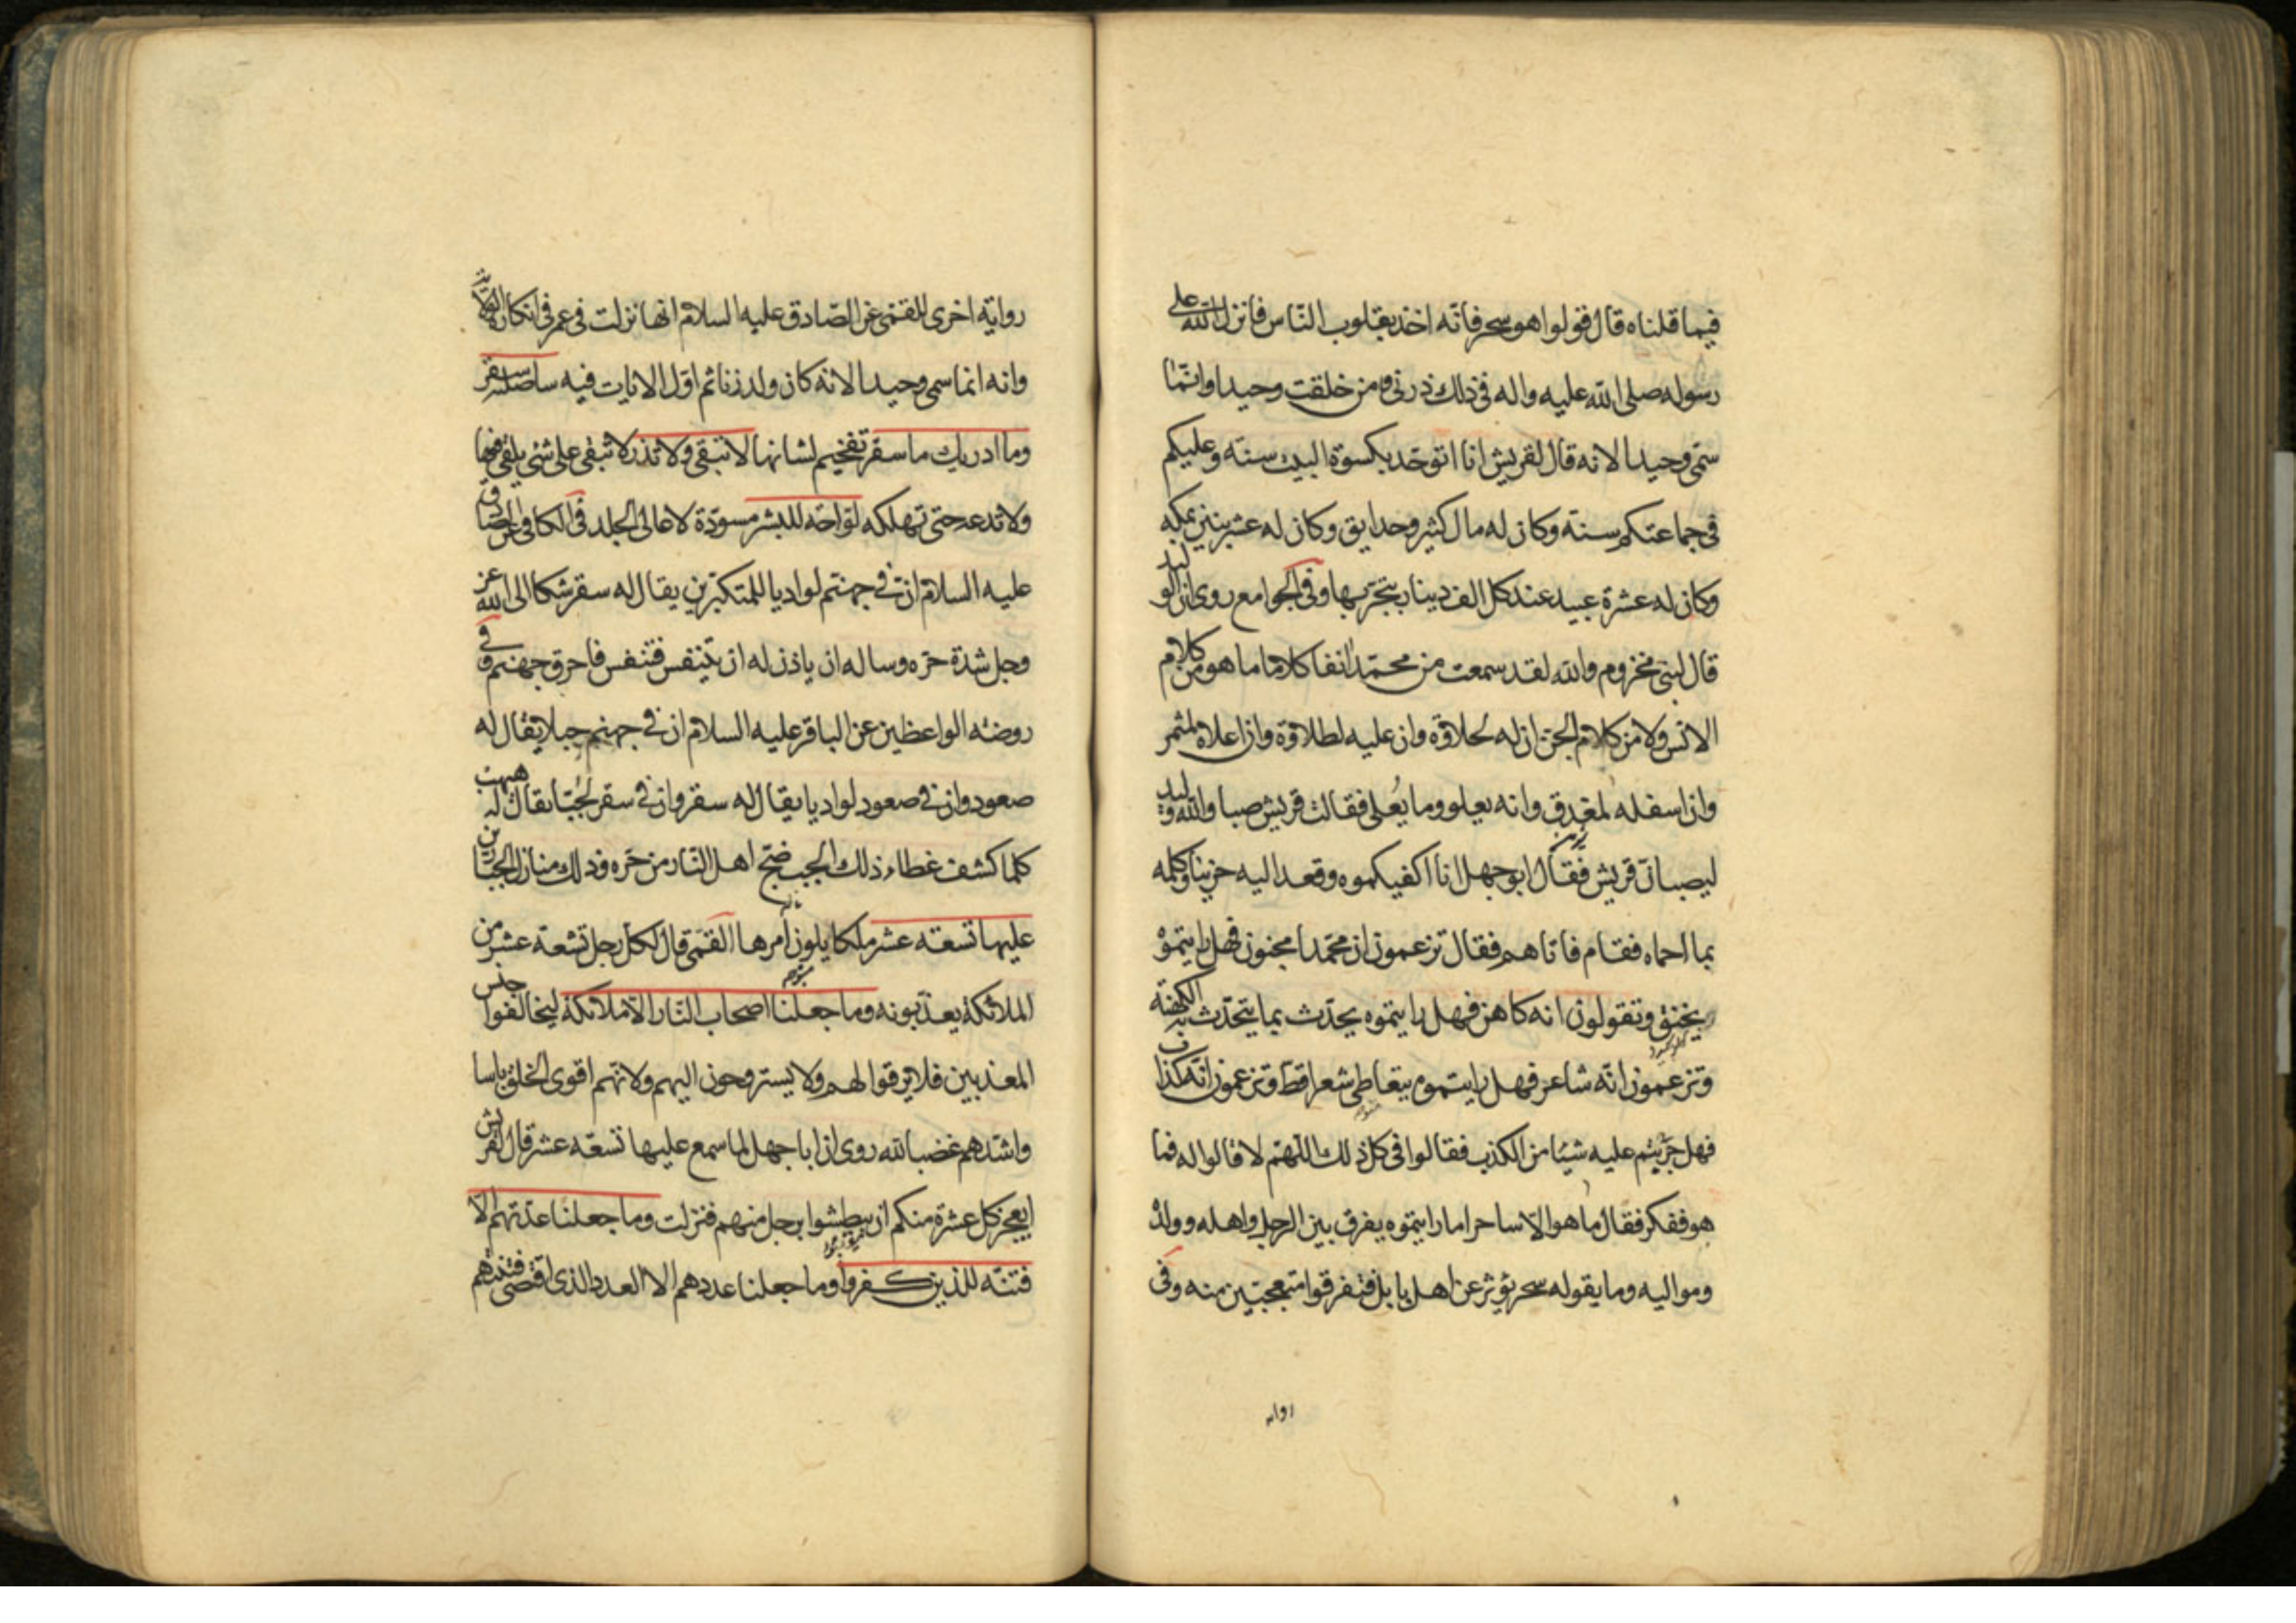 فيما قلناه قال قولوا هو سحر فانّه اخذ بقلوب النّاس فانزل الله على
رسوله صلى الله عليه واله فى ذلك ذرنى ومن خلقت وحيدا وانّما
سمّى وحيدا لانه قال لقريش انا اتوحّد بكسوة البيت سنة وعليكم
فى جماعتكم سنة وكان له مال كثير وحدايق وكان له عشر بنين بمكه
وكان له عشرة عبيد عند كل الف دينار يتّجر بها وفى الجوامع روى ان الوليد
قال لبنى مخزوم والله لقد سمعت من محمّد انفا كلاما ما هو من كلام
الانس ولا من كلام الجن ان له لحلاوة وان عليه لطلاوة وان اعلاه لمثمر
وان اسفله لمغدق وانه يعلو وما يُعلى فقالت قريش صبا والله الوليد
ليصبانّ قريش فقال ابو جهل انا اكفيكموه وقعد اليه حزينا وكلمه
بما احماه فقام فاتاهم فقال تزعمون ان محمّدا مجنون فهل رايتموه
يخنق وتقولون انه كاهن فهل رايتموه يحدّث بما يتحدّث به الكهنة
وتزعمون انّه شاعر فهل رايتموه يتعاطى شعرا قطّ وتزعمون انّه كذاب
فهل جرّبتم عليه شيئا من الكذب فقالوا فى كل ذلك اللّهمّ لا قالوا له فما
هو ففكر فقال ما هو الّا ساحر اما رايتموه يفرق بين الرجل واهله وولده
ومواليه وما يقوله سحر يؤثر عن اهل بابل فتفرقوا متعجبين منه وفى
رواية اخرى للقمّى عن الصّادق عليه السلام انها نزلت فى عمر فى انكاره الولاية
وانه انما سمى وحيدا لانه كان ولد زنا ثم اوّل الايات فيه ساصليه سقر
وما ادريك ما سقر تفخيم لشانها لا تبقى ولا تذر لا تبقى على شئ يلقى فيها
ولا تدعه حتى تهلكه لوّاحة للبشر مسوّدة لاعالى الجلد فى الكافى عن الصادق
عليه السلام انّ فى جهنّم لواديا للمتكبّرين يقال له سقر شكا الى الله عز
وجل شدّة حرّه وساله ان ياذن له ان يتنفس فتنفس فاحرق جهنم وفى
روضة الواعظين عن الباقر عليه السلام ان فى جهنم جبلا يقال له
صعود وان فى صعود لواديا يقال له سقر وان فى سقر لجُبّا يقال له هبهب
كلما كشف غطاء ذلك الجب ضجّ اهل النّار من حرّه وذلك منازل الجبّارين
عليها تسعة عشر ملكا يلون امرها القمّى قال لكل رجل تسعة عشر من
الملائكة يعذّبونه وما جعلنا اصحاب النّار الّا ملائكة ليخالفوا جنس
المعذبين فلا يرقّوا لهم ولا يستروحون اليهم ولانهم اقوى الخلق باسا
واشدّهم غضبا لله روى ان ابا جهل لما سمع عليها تسعة عشر قال لقريش
ايعجز كل عشرة منكم ان يبطشوا برجل منهم فنزلت وما جعلنا عدّتهم الّا
فتنة للذين كفروا وما جعلنا عددهم الا العدد الذى اقتضى فتنتهم